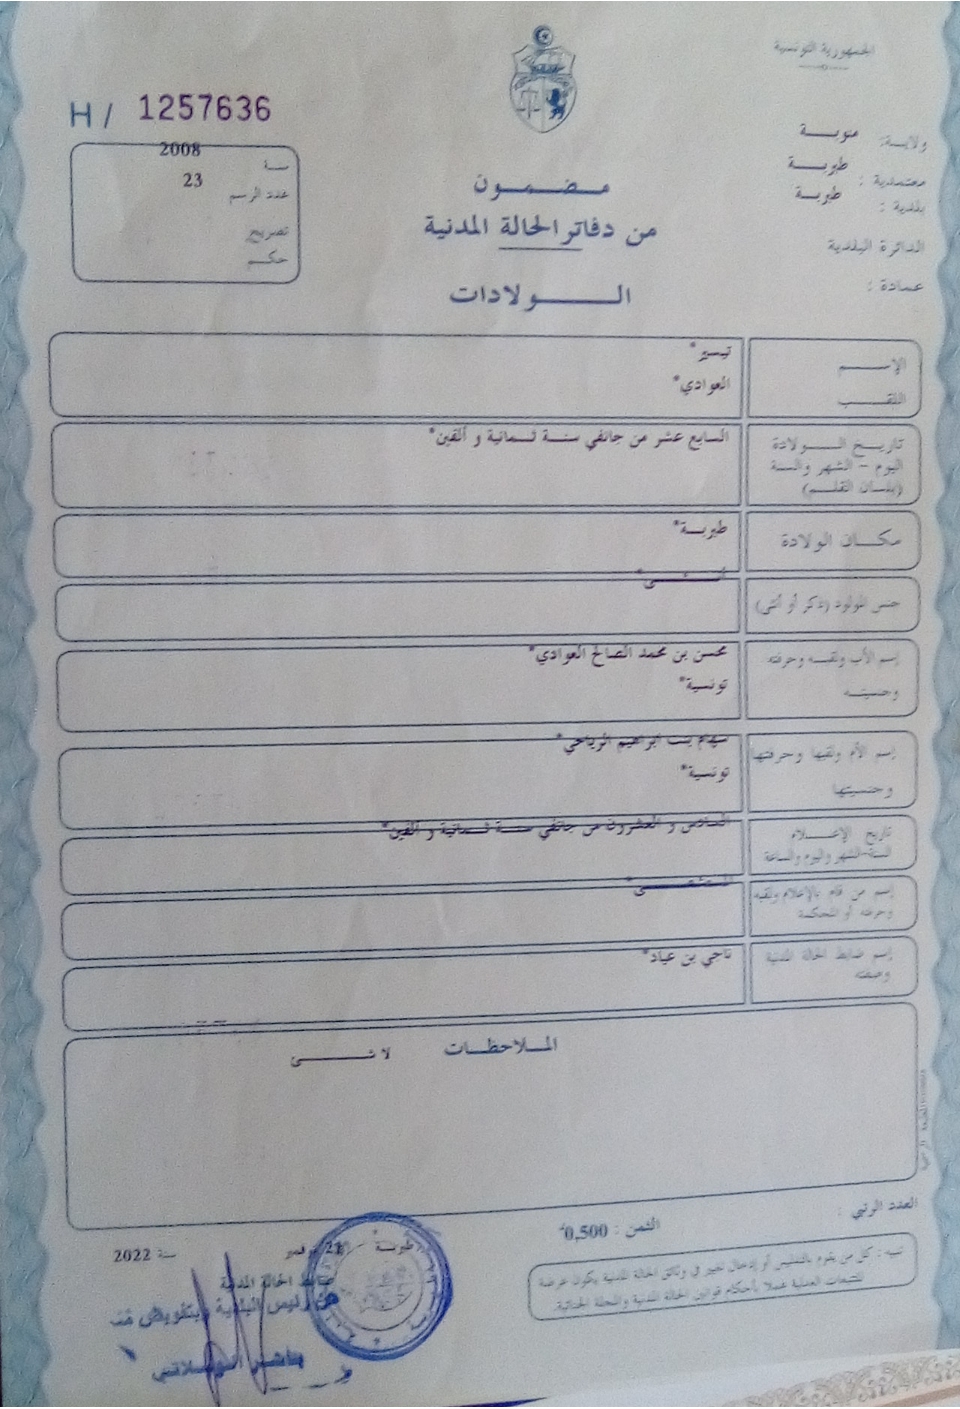 الجمهورية التونسية
H / 1257636
ولاية: منوبة
معتمدية : طبربة
بلدية : طبربة
الدائرة البلدية
عمادة :
سنة 2008
عدد الرسم 23
تصريح
حكم
مضمون
من دفاتر الحالة المدنية
الولادات
الإسم تيسير*
اللقب العوادي*
تاريخ الولادة السابع عشر من جانفي سنة ثمانية و ألفين*
اليوم - الشهر والسنة
(بلسان القلم)
مكان الولادة طبربة*
جنس المولود (ذكر أو أنثى) أنثى*
إسم الأب ولقبه وحرفته محسن بن محمد الصالح العوادي*
وجنسيته تونسية*
إسم الأم ولقبها وحرفتها سهام بنت ابراهيم الرياحي*
وجنسيتها تونسية*
تاريخ الإعلام السادس و العشرون من جانفي سنة ثمانية و ألفين*
السنة-الشهر واليوم والساعة
إسم من قام بالإعلام ولقبه المستشفى*
وحرفته أو المحكمة
إسم ضابط الحالة المدنية ناجي بن عياد*
وصفته
الملاحظات لا شئ
العدد الرتبي :
الثمن : 0,500
تنبيه : كل من يقوم بالتدليس أو إدخال تغيير في وثائق الحالة المدنية يكون عرضة
للتتبعات العدلية عملا بأحكام قوانين الحالة المدنية والمجلة الجنائية.
طبربة 21 نوفمبر سنة 2022
ضابط الحالة المدنية
عن رئيس البلدية وبتفويض منه